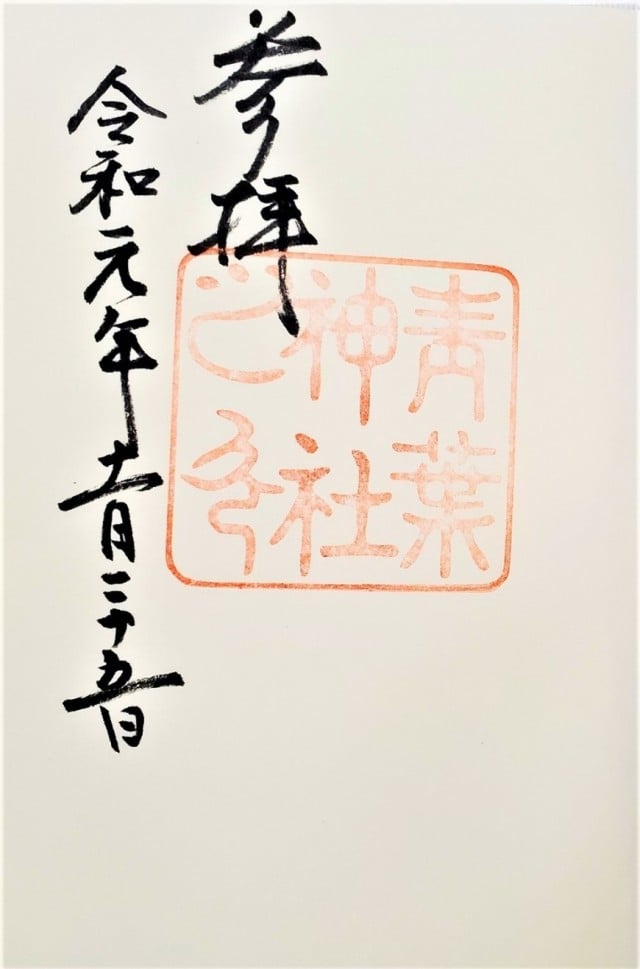 青葉
神社
之印
参拝
令和元年十一月二十五日